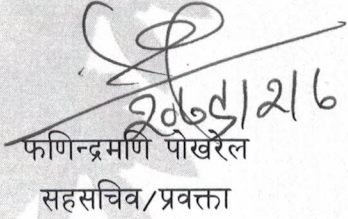 २०७९/२/७
फणिन्द्रमणि पोखरेल
सहसचिव/प्रवक्ता